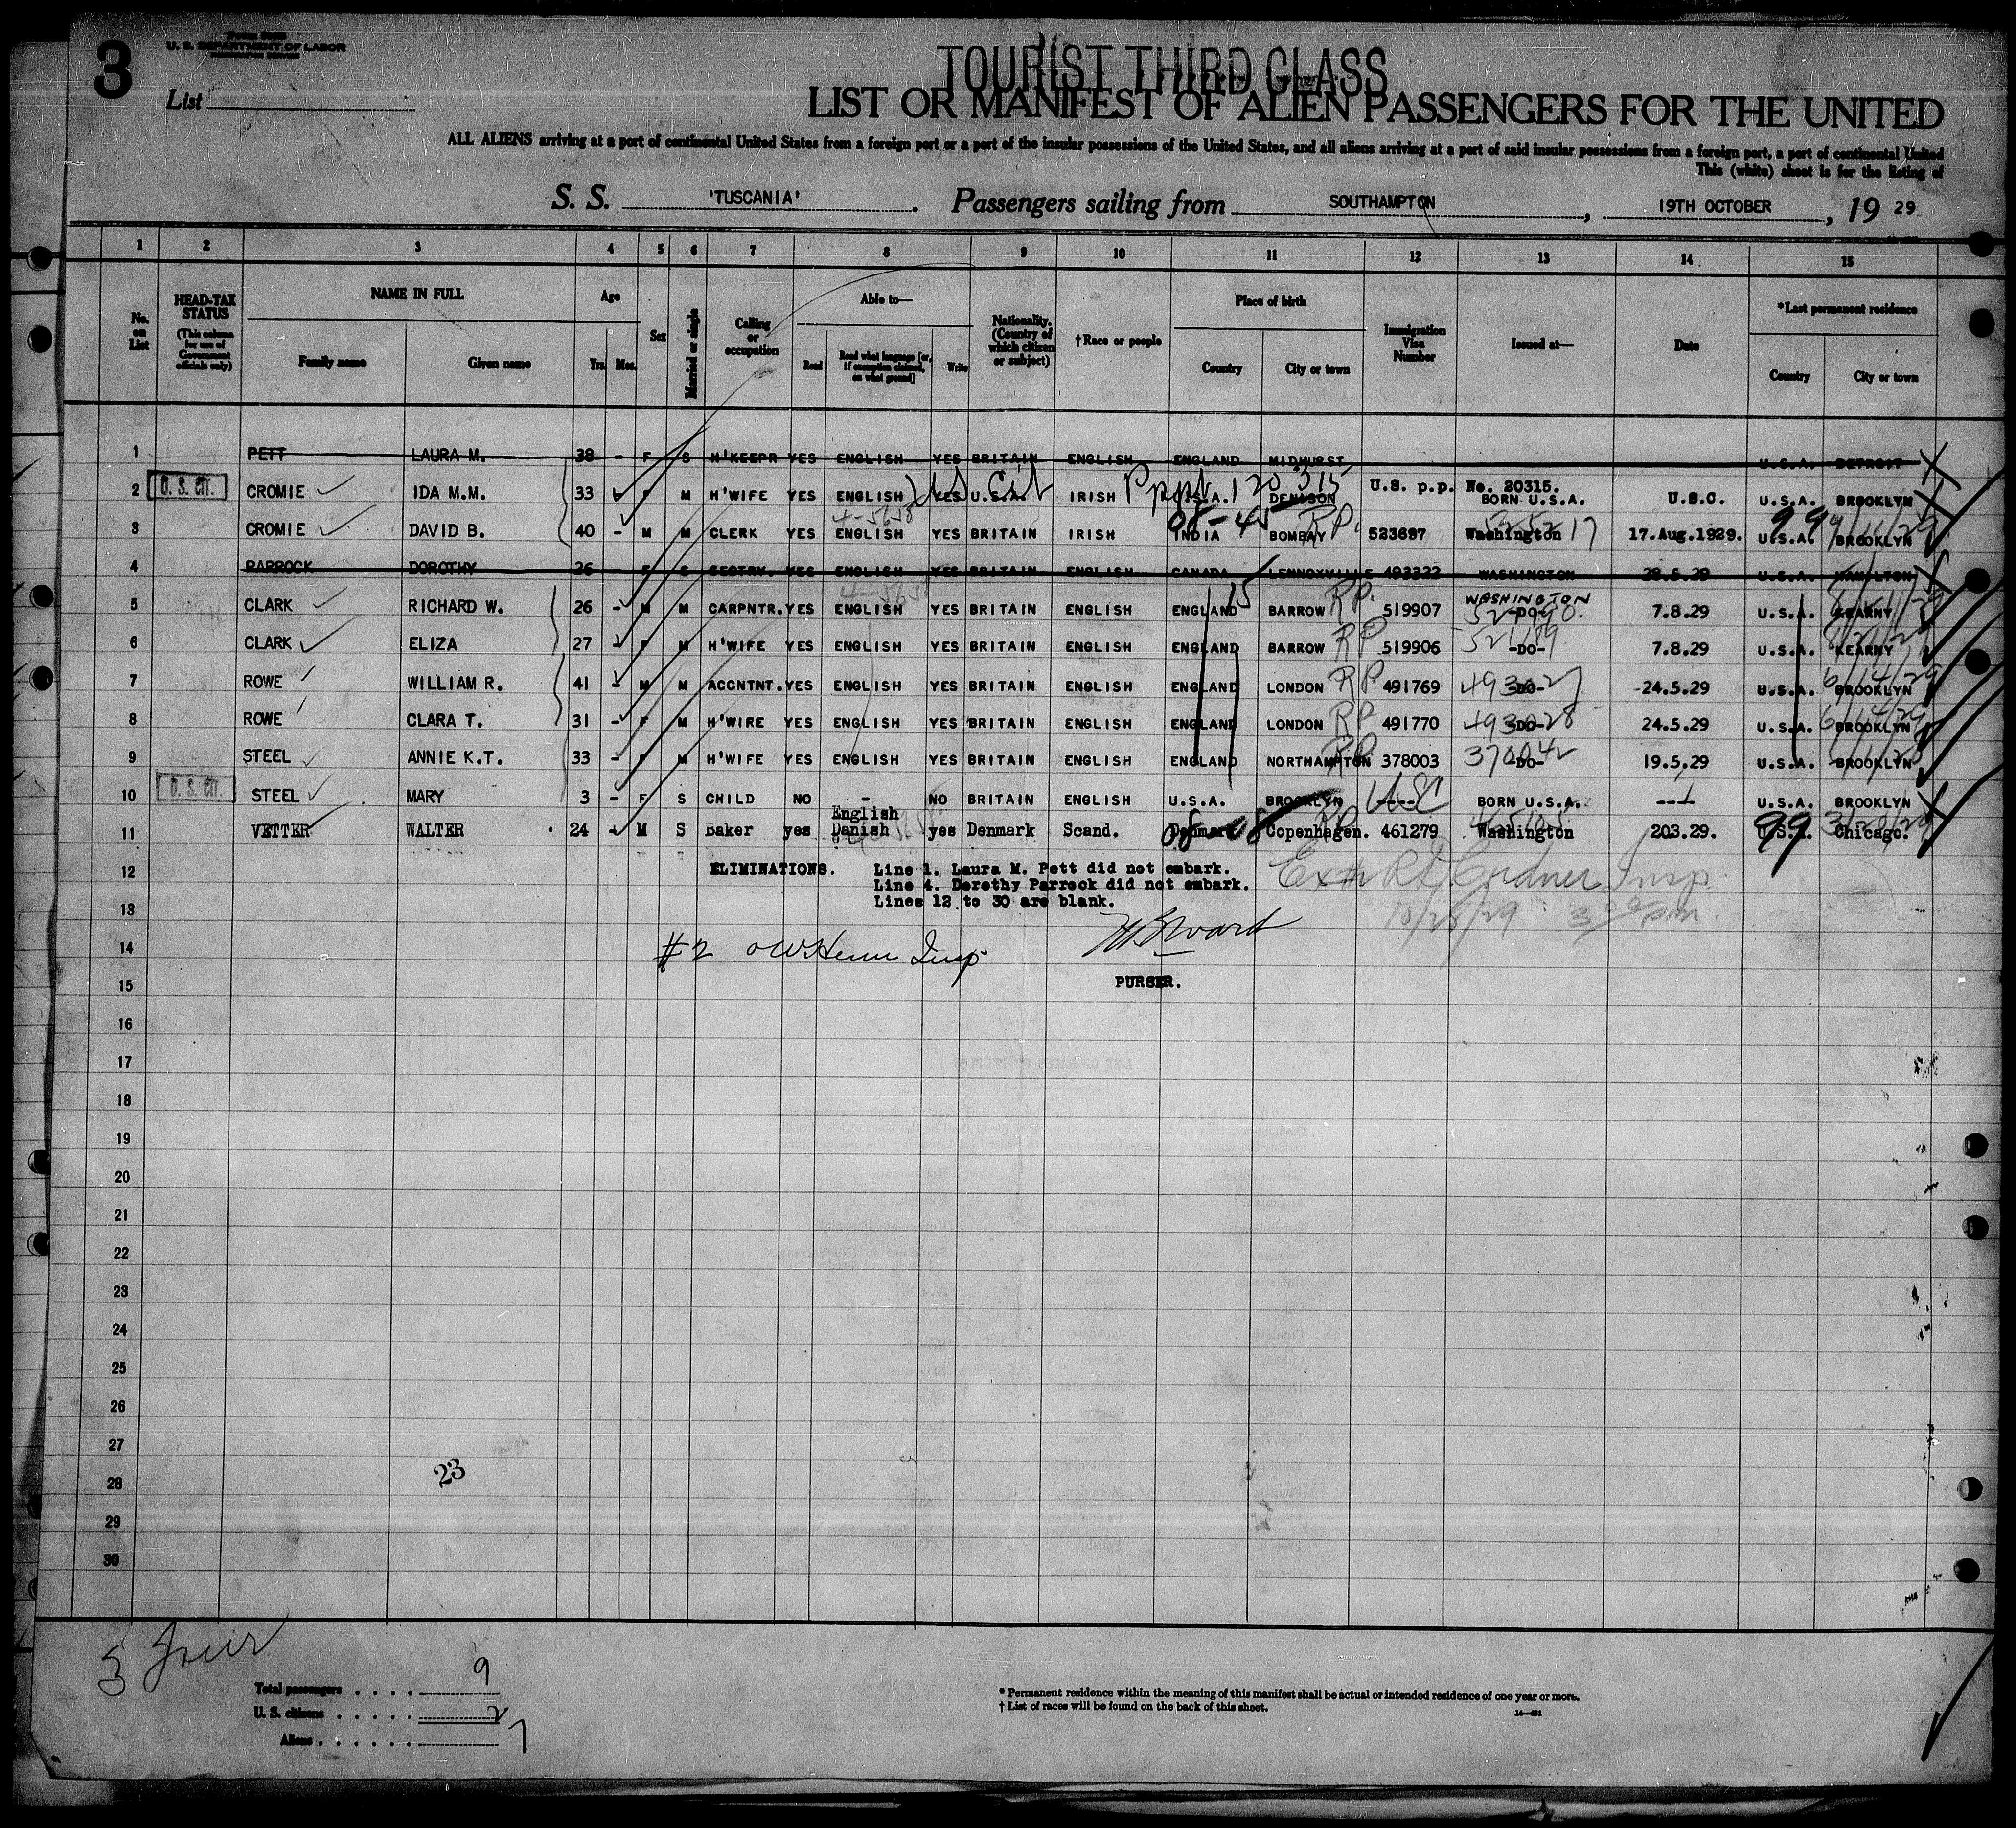 3
U. S. DEPARTMENT OF LABOR
List
TOURIST THIRD CLASS
LIST OR MANIFEST OF ALIEN PASSENGERS FOR THE UNITED
ALL ALIENS arriving at a port of continental United States from a foreign port or a port of the insular possessions of the United States, and all aliens arriving at a port of said insular possessions from a foreign port, a port of continental United
This (white) sheet is for the listing of
S. S. 'TUSCANIA' . Passengers sailing from SOUTHAMPTON , 19TH OCTOBER , 19 29
1 2 3 4 5 6 7 8 9 10 11 12 13 14 15
No. on List
HEAD-TAX STATUS (This column for use of Government officials only)
NAME IN FULL
Family name Given name
Age
Yrs. Mos.
Sex
Married or single
Calling or occupation
Able to—
Read Read what language [or, if exemption claimed, on what ground] Write
Nationality. (Country of which citizen or subject)
†Race or people
Place of birth
Country City or town
Immigration Visa Number
Issued at—
Date
*Last permanent residence
Country City or town
1 PETT LAURA M. 38 - F S H'KEEPR YES ENGLISH YES BRITAIN ENGLISH ENGLAND MIDHURST U.S.A. DETROIT X
2 U. S. CIT. CROMIE IDA M.M. 33 F M H'WIFE YES ENGLISH US Cit YES U.S.A. IRISH Ppprt 120315 U.S.A. DENISON U.S. p.p. No. 20315. BORN U.S.A. U.S.C. U.S.A. BROOKLYN
3 CROMIE DAVID B. 40 - M M CLERK YES 4-5658 ENGLISH YES BRITAIN IRISH 08-45 INDIA BOMBAY RP. 523697 Washington 525217 17.Aug.1929. U.S.A. 99 BROOKLYN
4 PARROCK DOROTHY 26 - F S SECTRY. YES ENGLISH YES BRITAIN ENGLISH CANADA LENNOXVILLE 492322 WASHINGTON 28.5.29 U.S.A. HAMILTON X
5 CLARK RICHARD W. 26 - M M CARPNTR. YES ENGLISH YES BRITAIN ENGLISH ENGLAND 15 BARROW RP. 519907 WASHINGTON -DO- 7.8.29 U.S.A. KEARNY
6 CLARK ELIZA 27 - F M H'WIFE YES ENGLISH YES BRITAIN ENGLISH ENGLAND BARROW RP 519906 -DO- 521189 7.8.29 U.S.A. KEARNY
7 ROWE WILLIAM R. 41 - M M ACCNTNT. YES ENGLISH YES BRITAIN ENGLISH ENGLAND LONDON RP 491769 -DO- 493027 24.5.29 U.S.A. 6/14/29 BROOKLYN
8 ROWE CLARA T. 31 - F M H'WIRE YES ENGLISH YES BRITAIN ENGLISH ENGLAND LONDON RP 491770 -DO- 493028 24.5.29 U.S.A. 6/14/29 BROOKLYN
9 STEEL ANNIE K.T. 33 - F M H'WIFE YES ENGLISH YES BRITAIN ENGLISH ENGLAND NORTHAMPTON RP. 378003 -DO- 370042 19.5.29 U.S.A. BROOKLYN
10 U. S. CIT. STEEL MARY 3 - F S CHILD NO - NO BRITAIN ENGLISH U.S.A. BROOKLYN USC ---- BORN U.S.A. ---- U.S.A. BROOKLYN
11 VETTER WALTER 24 - M S Baker yes English Danish yes Denmark Scand. Denmark 08-08 Copenhagen. RP 461279 Washington 203.29. U.S.A. 99 Chicago.
12 ELIMINATIONS. Line 1. Laura M. Pett did not embark.
Line 4. Dorothy Parrock did not embark.
Lines 12 to 30 are blank.
13
10/28/29 3 00 pm
14 #2 Insp. Ward
15 PURSER.
16
17
18
19
20
21
22
23
24
25
26
27
28 23
29
30
3
Total passengers . . . . 9
U. S. citizens . . . . . 2
Aliens . . . . . . 7
* Permanent residence within the meaning of this manifest shall be actual or intended residence of one year or more.
† List of races will be found on the back of this sheet.